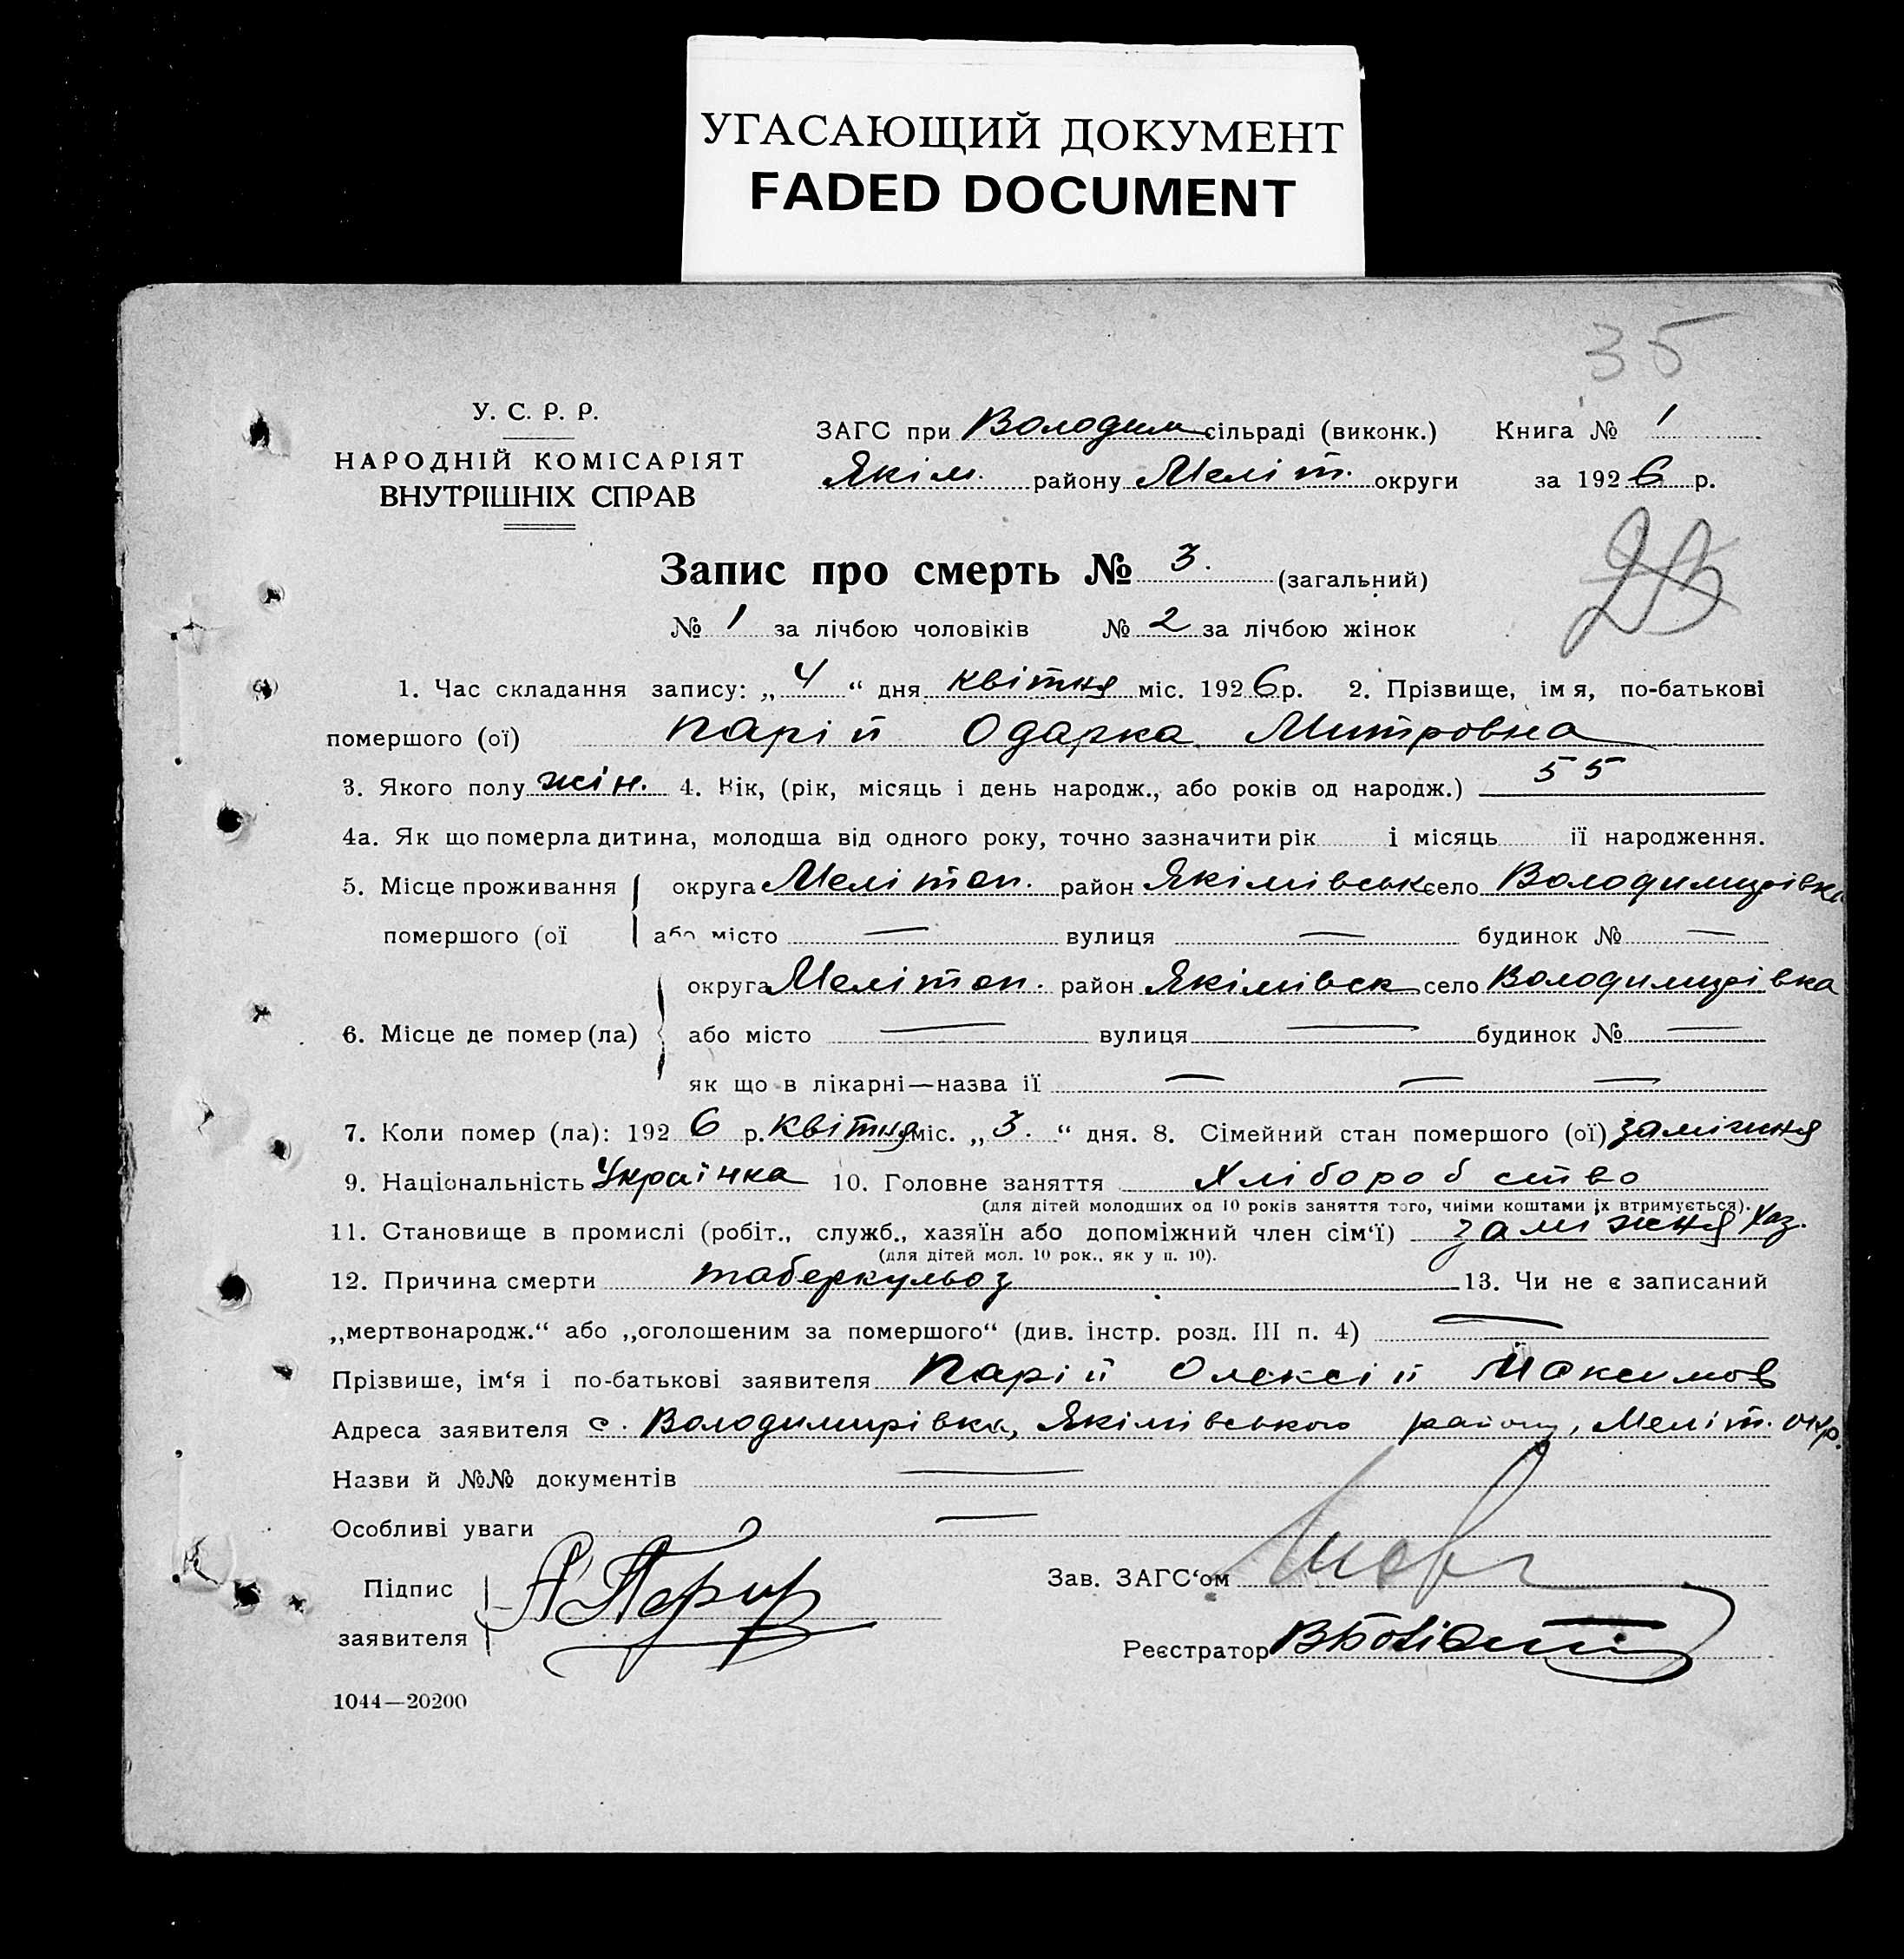 УГАСАЮЩИЙ ДОКУМЕНТ
FADED DOCUMENT
35
У. С. Р. Р.
НАРОДНІЙ КОМІСАРІЯТ
ВНУТРІШНІХ СПРАВ
ЗАГС при Володим сільраді (виконк.) Книга № 1
Якім. району Меліт. округи за 1926 р.
Запис про смерть № 3. (загальний)
№ 1 за лічбою чоловіків № 2 за лічбою жінок
1. Час складання запису: „4“ дня квітня міс. 1926 р. 2. Прізвище, імя, по-батькові
помершого (ої) Парій Одарка Митровна
3. Якого полу жін. 4. Вік, (рік, місяць і день народж., або років од народж.) 55
4а. Як що померла дитина, молодша від одного року, точно зазначити рік і місяць ії народження.
5. Місце проживання округа Мелітоп. район Якімівськ село Володимирівка
помершого (ої або місто — вулиця — будинок № —
округа Мелітоп. район Якімівск село Володимирівка
6. Місце де помер (ла) або місто — вулиця — будинок № —
як що в лікарні—назва ії — — —
7. Коли помер (ла): 1926 р. квітня міс. „3.“ дня. 8. Сімейний стан помершого (ої) заміжня
9. Національність Українка 10. Головне заняття Хліборобство
(для дітей молодших од 10 років заняття того, чиіми коштами їх втримується).
11. Становище в промислі (робіт., служб., хазяїн або допоміжний член сім‘ї) заміжня хаз.
(для дітей мол. 10 рок., як у п. 10).
12. Причина смерти таберкульоз 13. Чи не є записаний
„мертвонародж.“ або „оголошеним за помершого“ (див. інстр. розд. III п. 4) —
Прізвише, ім‘я і по-батькові заявителя Парій Олексій Максимов
Адреса заявителя с. Володимирівка, Якімівського району, Меліт. окр.
Назви й №№ документів —
Особливі уваги —
Підпис А Парий Зав. ЗАГС‘ом
заявителя Реєстратор
1044—20200